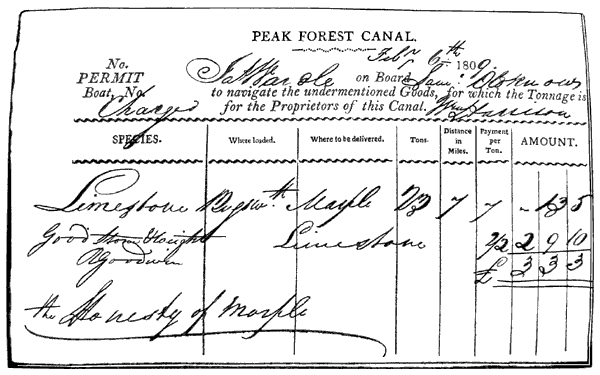 PEAK FOREST CANAL.
Feby 6th 1809.
No.
PERMIT on Board Saml.
Boat, No. to navigate the undermentioned Goods, for which the Tonnage is
Charged for the Proprietors of this Canal. Wm Harrison
SPECIES. Where loaded. Where to be delivered. Tons. Distance in Miles. Payment per Ton. AMOUNT.
Limestone Bugswth Marple 23 7 7 - 13 5
Good Limestone 2/2 2 9 10
Goodwin £ 3 3 3
the Honesty of Marple